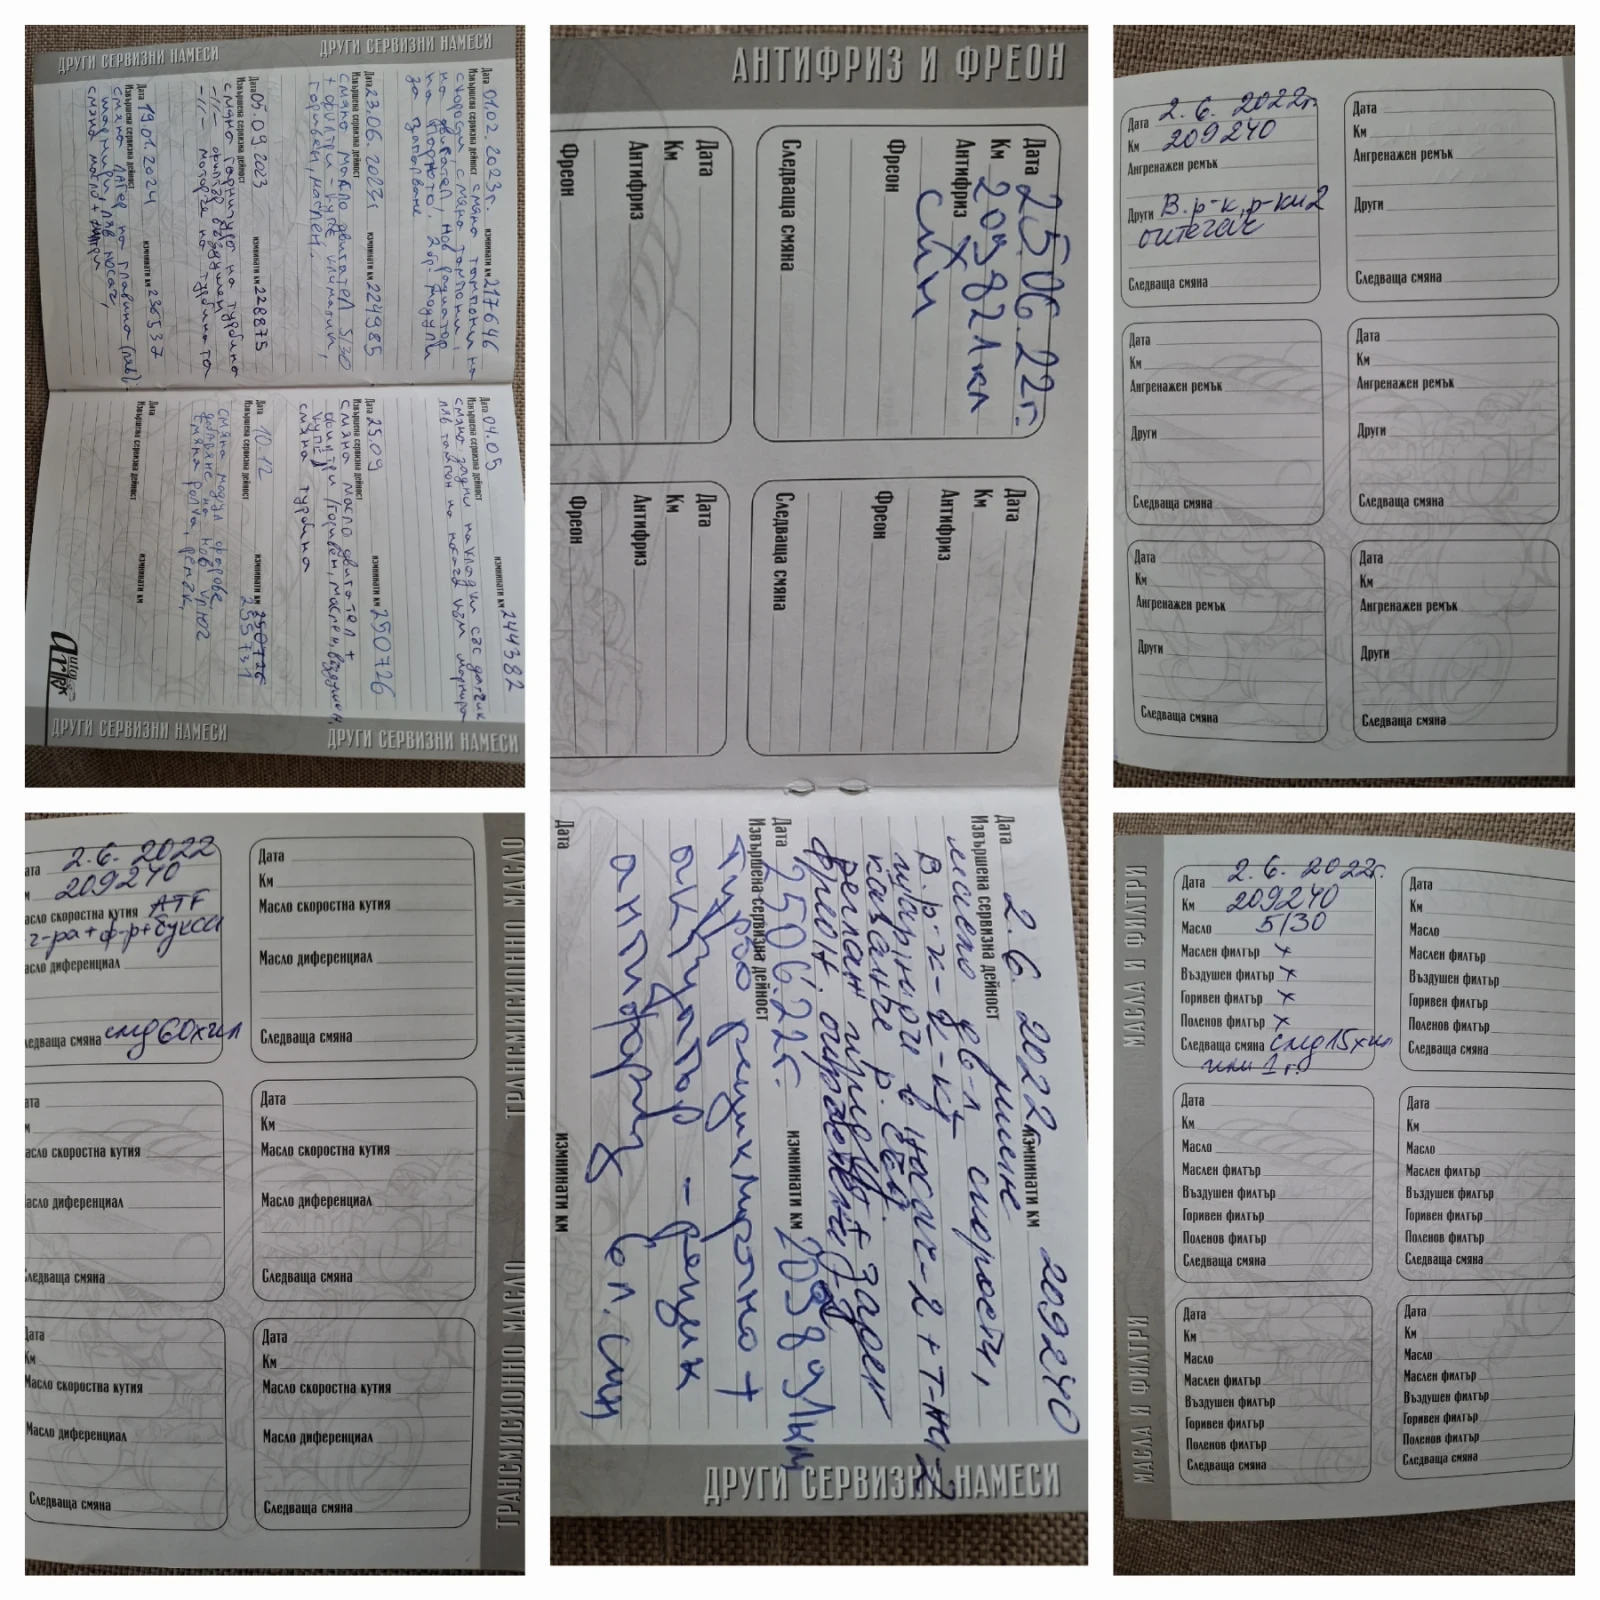 ДРУГИ СЕРВИЗНИ НАМЕСИ
ДРУГИ СЕРВИЗНИ НАМЕСИ
Дата 01.02.2023г. изминати км 217646
Извършена сервизна дейност смяна тампони на
скорости, смяна тампони,
на двигател, нов радиатор
на парното. 2бр. модули
за запалване
Дата 23.06.2023г изминати км 224985
Извършена сервизна дейност
смяна масло двигател 5/30
+ филтри - купе, климатик,
горивен, маслен.
Дата 05.09.2023 изминати км 228875
Извършена сервизна дейност
смяна гарнитура на турбина
-//- филтър въздушен
-//- моторче на турбината
Дата 19.01.2024 изминати км 236537
Извършена сервизна дейност
смяна лагер на главина (ляв).
шарнири, ляв носач,
смяна масло + филтри
Дата 04.05 изминати км 244382
Извършена сервизна дейност
смяна задни накладки със датчик
ляв тампон на носача към шарнира
Дата 25.09 изминати км 250726
Извършена сервизна дейност
смяна масло двигател +
филтри /горивен, маслен, въздушен,
купе/
смяна турбина
Дата 10.12 изминати км 250726
255731
Извършена сервизна дейност
смяна модул фарове
добавяне на нов ключ
смяна ролка, ремък,
Дата изминати км
Извършена сервизна дейност
ДРУГИ СЕРВИЗНИ НАМЕСИ
ДРУГИ СЕРВИЗНИ НАМЕСИ
АНТИФРИЗ И ФРЕОН
Дата 25.06.22г.
Км 209821км
Антифриз X
син
Фреон
Следваща смяна
Дата
Км
Антифриз
Фреон
Дата
Км
Антифриз
Фреон
Следваща смяна
Дата
Км
Антифриз
Фреон
Дата 2.6.2022г. изминати км 209240
Извършена сервизна дейност
масло дв-л, скорости,
В.р-к-к-кт
шарнири в носач-2 + т-жи 2
фреон
Дата 25.06.22г. изминати км 209821км
Извършена сервизна дейност
турбо
антифриз 6л. син
Дата изминати км
ДРУГИ СЕРВИЗНИ НАМЕСИ
Дата 2.6.2022г.
Км 209240
Ангренажен ремък
Други В.р-к, р-ки 2
обтегач
Следваща смяна
Дата
Км
Ангренажен ремък
Други
Следваща смяна
Дата
Км
Ангренажен ремък
Други
Следваща смяна
Дата
Км
Ангренажен ремък
Други
Следваща смяна
Дата
Км
Ангренажен ремък
Други
Следваща смяна
Дата
Км
Ангренажен ремък
Други
Следваща смяна
ата 2.6.2022
м 209240
асло скоростна кутия ATF
г-ра+ф-р+букси
асло диференциал
ледваща смяна след 60хил
Дата
Км
Масло скоростна кутия
Масло диференциал
Следваща смяна
ата
м
асло скоростна кутия
асло диференциал
ледваща смяна
Дата
Км
Масло скоростна кутия
Масло диференциал
Следваща смяна
Дата
Км
Масло скоростна кутия
Масло диференциал
Следваща смяна
Дата
Км
Масло скоростна кутия
Масло диференциал
Следваща смяна
ТРАНСМИСИОННО МАСЛО
ТРАНСМИСИОННО МАСЛО
МАСЛА И ФИЛТРИ
МАСЛА И ФИЛТРИ
Дата 2.6.2022г.
Км 209240
Масло 5/30
Маслен филтър x
Въздушен филтър x
Горивен филтър x
Поленов филтър x
Следваща смяна след 15хил
или 1г.
Дата
Км
Масло
Маслен филтър
Въздушен филтър
Горивен филтър
Поленов филтър
Следваща смяна
Дата
Км
Масло
Маслен филтър
Въздушен филтър
Горивен филтър
Поленов филтър
Следваща смяна
Дата
Км
Масло
Маслен филтър
Въздушен филтър
Горивен филтър
Поленов филтър
Следваща смяна
Дата
Км
Масло
Маслен филтър
Въздушен филтър
Горивен филтър
Поленов филтър
Следваща смяна
Дата
Км
Масло
Маслен филтър
Въздушен филтър
Горивен филтър
Поленов филтър
Следваща смяна